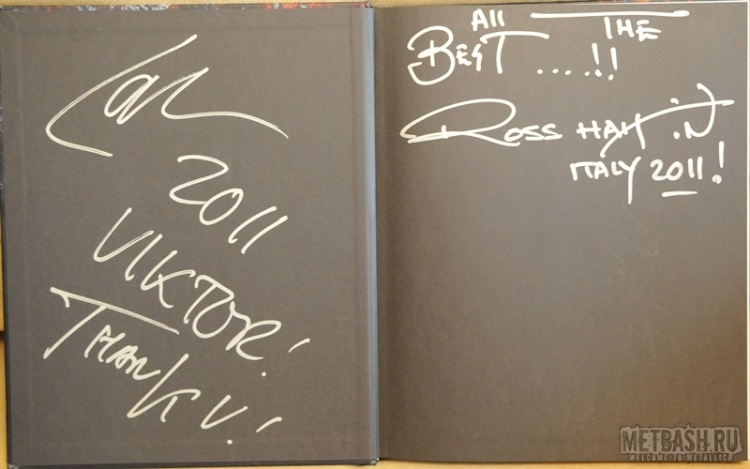 2011
VIKTOR!
THANK U!
All THE
BEST .....!!
ROSS HALFIN
ITALY 2011!
METBASH.RU
WELCOME TO METALLICA